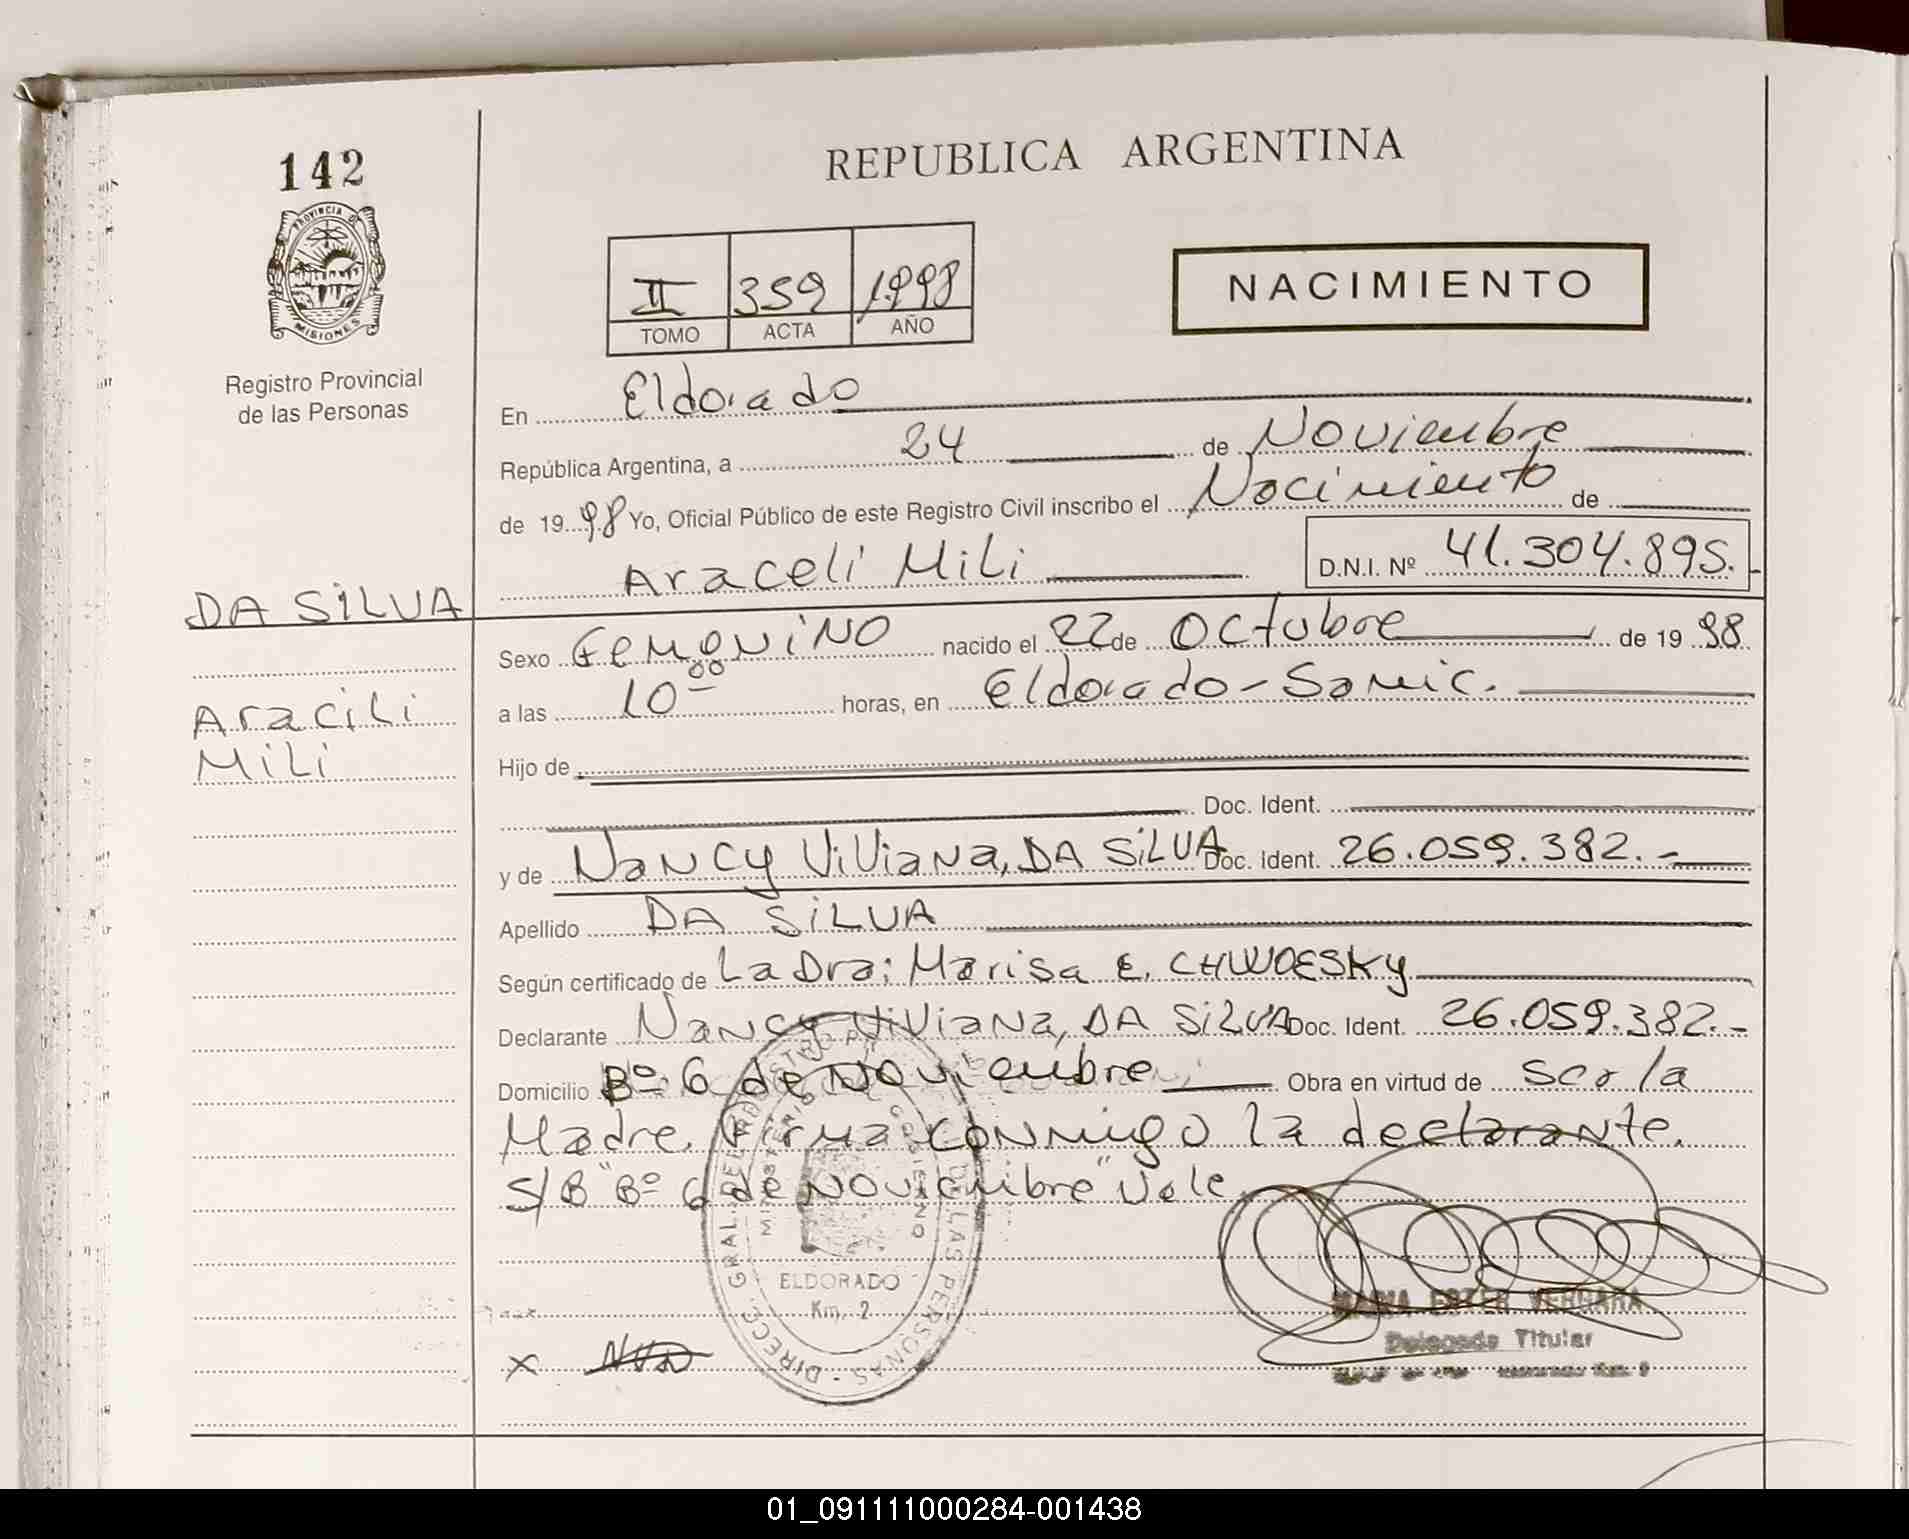 142
PROVINCIA DE
MISIONES
Registro Provincial
de las Personas
REPUBLICA ARGENTINA
II 359 1998
TOMO ACTA AÑO
NACIMIENTO
En Eldorado
República Argentina, a 24 de Noviembre
de 1998 Yo, Oficial Público de este Registro Civil inscribo el Nacimiento de
Araceli Mili D.N.I. Nº 41.304.895.
DA SILVA
Aracili
Mili
Sexo Femenino nacido el 22 de Octubre de 1998
a las 10 00 horas, en Eldorado - Samic.
Hijo de
Doc. Ident.
y de Nancy Viviana, DA SILVA Doc. Ident. 26.059.382.-
Apellido DA SILVA
Según certificado de La Dra: Marisa E. CHWOESKY
Declarante Nancy Viviana, DA SILVA Doc. Ident. 26.059.382.-
Domicilio Bº 6 de Noviembre Obra en virtud de ser la
Madre. Firma conmigo la declarante.
S/B "Bº 6 de Noviembre" Vale
DIRECC. GRAL. DEL REGISTRO PR DE LAS PERSONAS
MINISTERIO DE GOBIERNO
ELDORADO
Km. 2
MARIA ESTER VERGARA
Delegada Titular
x
01_091111000284-001438